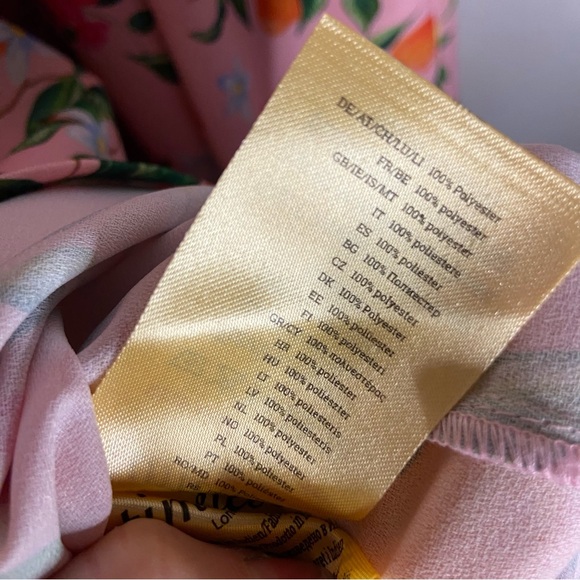 DE/AT/CH/LU/LI 100% Polyester
FR/BE 100% polyester
GB/IE/IS/MT 100% polyester
IT 100% poliestere
ES 100% poliéster
BG 100% Полиестер
CZ 100% polyester
DK 100% Polyester
EE 100% polüester
FI 100% polyesteri
GR/CY 100% πολυεστέρας
HR 100% poliester
HU 100% poliészter
LT 100% poliesteris
LV 100% poliesteris
NL 100% polyester
NO 100% polyester
PL 100% poliester
PT 100% poliéster
RO/MD 100% poliester